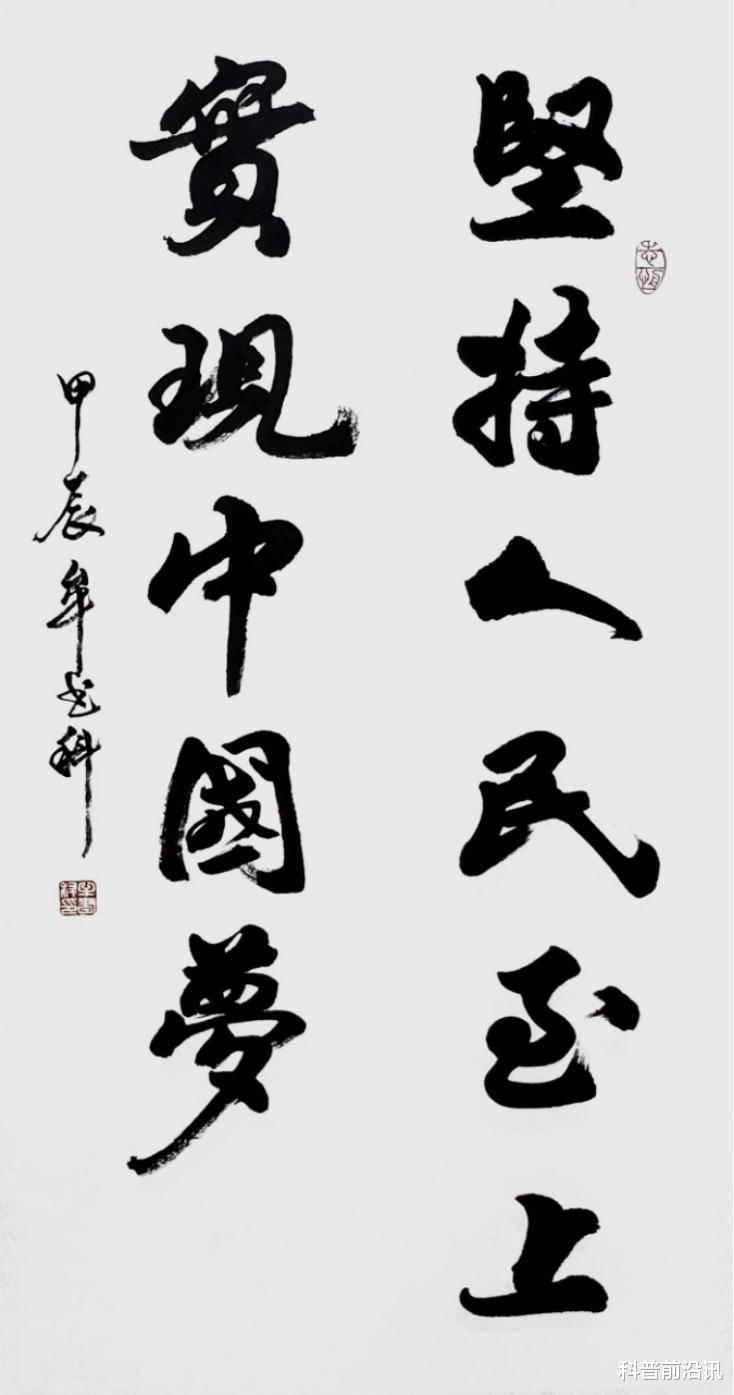 堅持人民至上
實現中國夢
甲辰牟书科
科普前沿讯